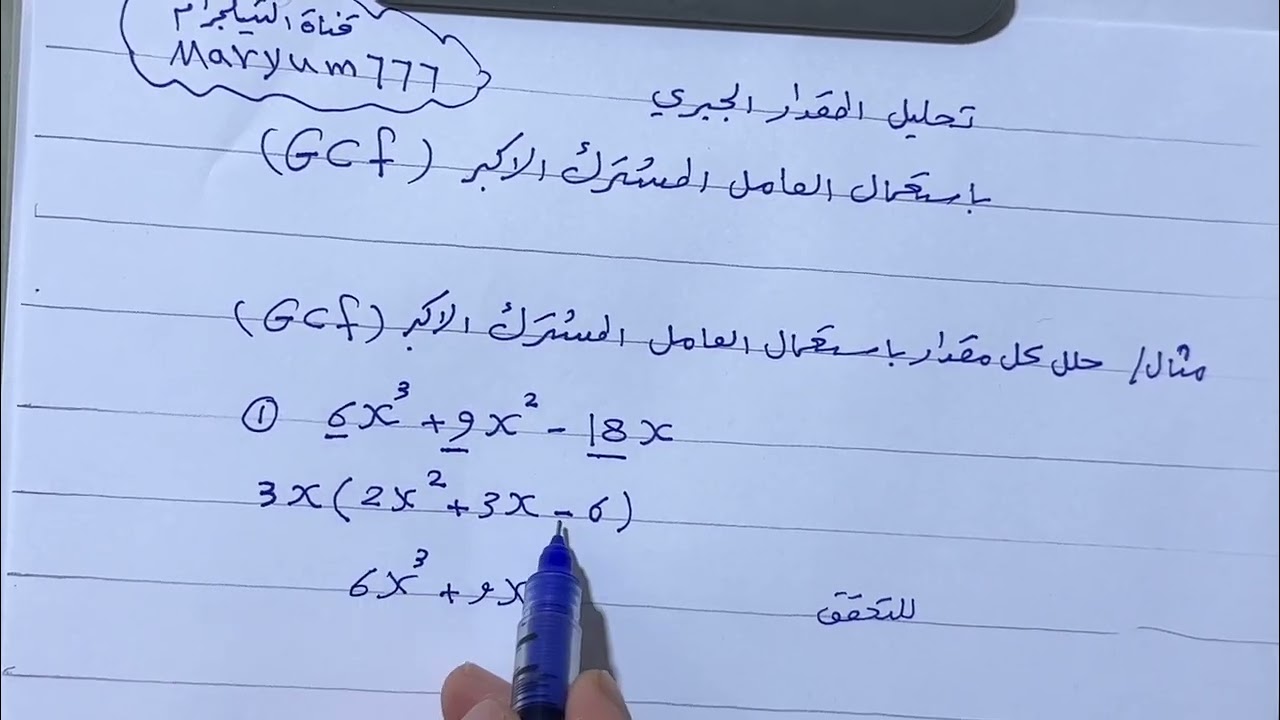 قناة التيلجرام
Maryum777
تحليل المقدار الجبري
باستعمال العامل المشترك الاكبر (GCf)
مثال/ حلل كل مقدار باستعمال العامل المشترك الاكبر (GCf)
① 6x³ + 9x² - 18x
3x(2x² + 3x - 6)
6x³ + 9x
للتحقق